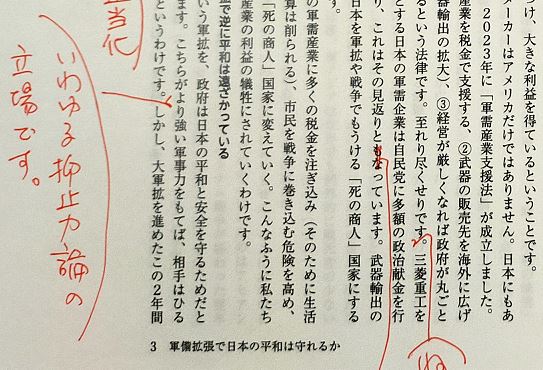 け、大きな利益を得ているということです。
メーカーはアメリカだけではありません。日本にもあ
2023年に「軍需産業支援法」が成立しました。
産業を税金で支援する、②武器の販売先を海外に広げ
器輸出の拡大）、③経営が厳しくなれば政府が丸ごと
るという法律です。至れり尽くせりです。三菱重工を
とする日本の軍需企業は自民党に多額の政治献金を行
り、これはその見返りともなっています。武器輸出の
日本を軍拡や戦争でもうける「死の商人」国家にする
す。
の軍需産業に多くの税金を注ぎ込み（そのために生活
算は削られる）、市民を戦争に巻き込む危険を高め、
「死の商人」国家に変えていく。こんなふうに私たち
産業の利益の犠牲にされていくわけです。
で逆に平和は遠ざかっている
いう軍拡を、政府は日本の平和と安全を守るためだと
ます。こちらがより強い軍事力をもてば、相手はひる
というわけです。しかし、大軍拡を進めたこの2年間
当化
いわゆる抑止力論の
立場です。
3 軍備拡張で日本の平和は守れるか